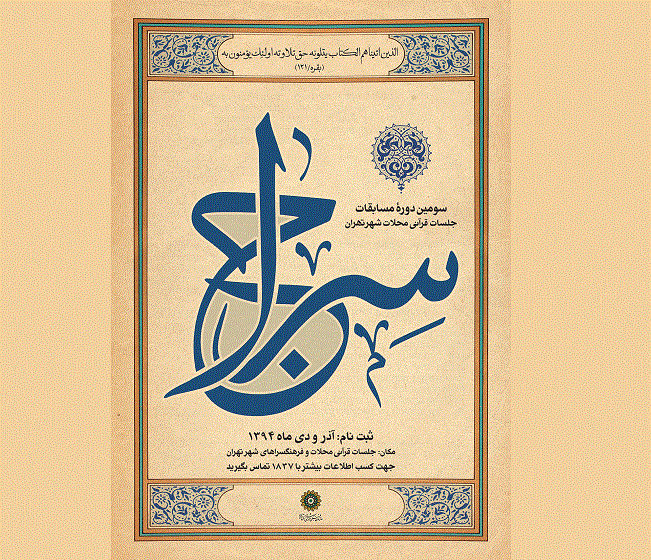 الذین اتیناهم الکتاب یتلونه حق تلاوته اولئک یؤمنون به
(بقره/۱۲۱)
سومین دورهٔ مسابقات
جلسات قرآنی محلات شهر تهران
سِراج
ثبت نام: آذر و دی ماه ۱۳۹۴
مکان: جلسات قرآنی محلات و فرهنگسراهای شهر تهران
جهت کسب اطلاعات بیشتر با ۱۸۳۷ تماس بگیرید